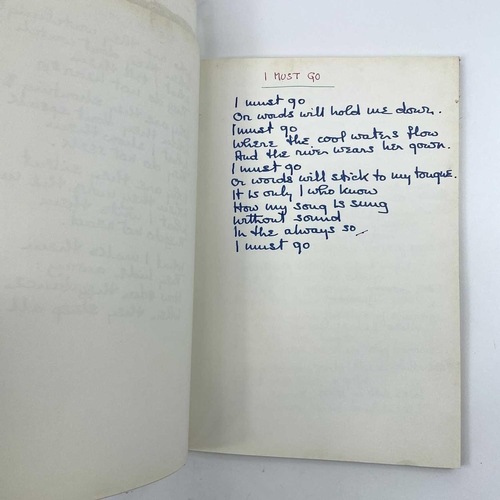 I MUST GO
I must go
Or words will hold me down.
I must go
Where the cool waters flow
And the river wears her gown.
I must go
Or words will stick to my tongue.
It is only I who know
How my song is sung
Without sound
In the always so
I must go